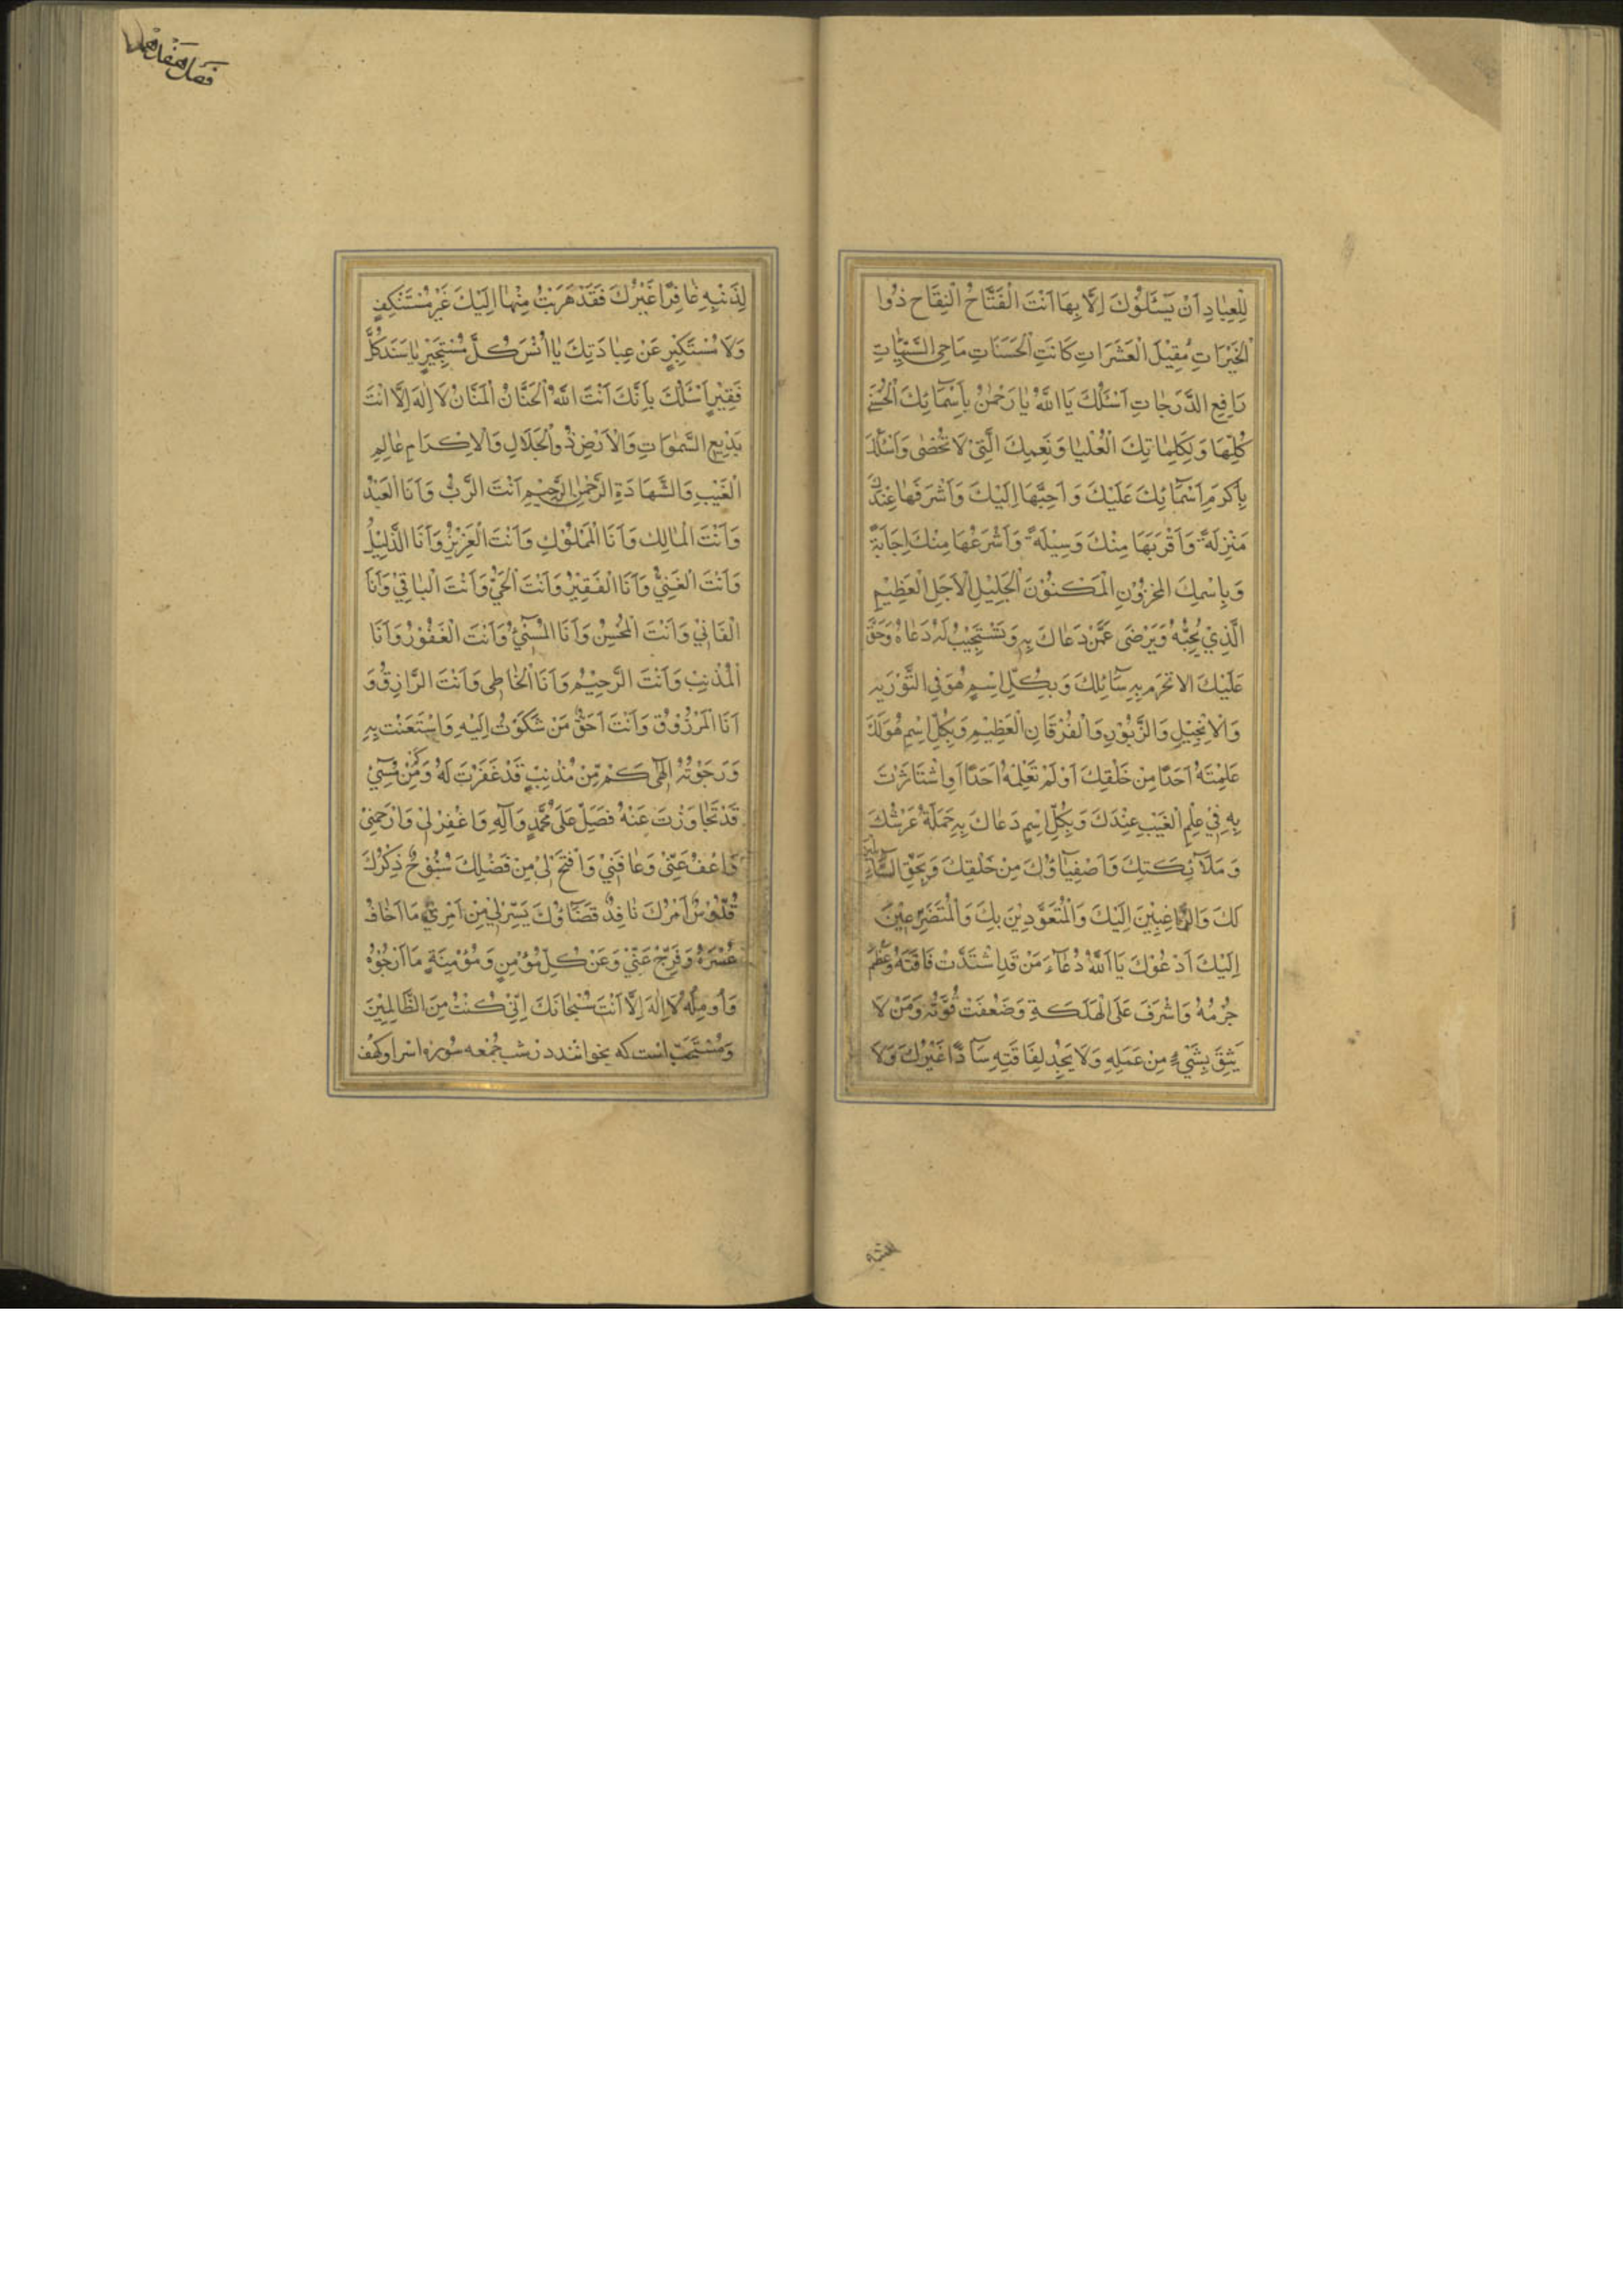 لِلْعِبَادِ اَنْ يَسْئَلُوْكَ اِلَّا بِهَا اَنْتَ الْفَتَّاحُ النِفَاحِ ذُوا
الْخَيْرَاتِ مُقِيْلَ الْعَشَرَاتِ كَاتَبَ الْحَسَنَاتِ مَاحِي السَّيِّئَاتِ
رَافِعِ الدَّرَجَاتِ اَسْئَلُكَ يَا اَللّٰهُ يَا رَحْمٰنُ بِاَسْمَآئِكَ الْحُسْنٰى
كُلِّهَا وَ لِكَلِمَاتِكَ الْعُلْيَا وَ نِعَمِكَ الَّتِيْ لَا تُحْصٰى وَ اَسْئَلُكَ
بِاَكْرَمِ اَسْمَآئِكَ عَلَيْكَ وَ اَحَبِّهَا اِلَيْكَ وَ اَشْرَفِهَا عِنْدَكَ
مَنْزِلَةً وَ اَقْرَبَهَا مِنْكَ وَسِيْلَةً وَ اَسْرَعِهَا مِنْكَ اِجَابَةً
وَ بِاسْمِكَ الْمَخْزُوْنِ الْمَكْنُوْنِ الْجَلِيْلِ الْاَجَلِ الْعَظِيْمِ
الَّذِيْ يُحِبُّهُ وَ يَرْضٰى عَمَّنْ دَعَاكَ بِهِ وَ تَسْتَجِيْبُ لَهُ دُعَاهُ وَ حَقٌّ
عَلَيْكَ الا تحرم بِهِ سَآئِلَكَ وَ بِكُلِّ اِسْمٍ هُوَ فِي التَّوْرَيةِ
وَ الْاِنْجِيْلِ وَ الزَّبُوْرِ وَ الْفُرْقَانِ الْعَظِيْمِ وَ بِكُلِّ اِسْمٍ هُوَ لَكَ
عَلِمْتَهُ اَحَدًا مِنْ خَلْقِكَ اَوْ لَمْ تَعْلِمْهُ اَحَدًا اَوِ اسْتَاثَرْتَ
بِهِ فِيْ عِلْمِ الْغَيْبِ عِنْدَكَ وَ بِكُلِّ اِسْمٍ دَعَاكَ بِهِ حَمَلَةُ عَرْشُكَ
وَ مَلَآئِكَتِكَ وَ اَصْفِيَآؤُكَ مِنْ خَلْقِكَ وَ بِحَقِّ السَّآئِلِيْنَ
لَكَ وَ الرَّاغِبِيْنَ اِلَيْكَ وَ الْمُتَعَوِّذِيْنَ بِكَ وَ الْمُتَضَرِّعِيْنَ
اِلَيْكَ اَدْعُوْكَ يَا اَللّٰهُ دُعَآءَ مَنْ قَدِ اشْتَدَّتْ فَاقَتَهُ وَ عَظُمَ
جُرْمُهُ وَ اشْرَفَ عَلَى الْهَلَكَةِ وَ ضَعُفَتْ قُوَّتُهُ وَ مَنْ لَا
يَثِقَ بِشَيْءٍ مِنْ عَمَلِهِ وَ لَا يَجِدْ لِفَاقَتِهِ سَآدًّا غَيْرُكَ وَ لَا
لِذَنْبِهِ غَافِرًا غَيْرُكَ فَقَدْ هَرَبْتُ مِنْهَا اِلَيْكَ غَيْرَ مُسْتَنْكِفٍ
وَ لَا مُسْتَكْبِرٍ عَنْ عِبَادَتِكَ يَا اُنْسَ كُلِّ مُسْتَجِيْرٍ يَا سَنَدَ كُلِّ
فَقِيْرٍ اَسْئَلُكَ بِاَنَّكَ اَنْتَ اللّٰهُ الْحَنَّانُ الْمَنَّانُ لَا اِلٰهَ اِلَّا اَنْتَ
بَدِيْعِ السَّمٰوَاتِ وَ الْاَرْضِ ذُو الْجَلَالِ وَ الْاِكْرَامِ عَالِمِ
الْغَيْبِ وَ الشَّهَادَةِ الرَّحْمٰنِ الرَّحِيْمِ اَنْتَ الرَّبُّ وَ اَنَا الْعَبْدُ
وَ اَنْتَ الْمَالِك وَ اَنَا الْمَمْلُوْكُ وَ اَنْتَ الْعَزِيْزُ وَ اَنَا الذَّلِيْلُ
وَ اَنْتَ الْغَنِيُّ وَ اَنَا الْفَقِيْرُ وَ اَنْتَ الْحَيُّ وَ اَنْتَ الْبَاقِيْ وَ اَنَا
الْفَانِيْ وَ اَنْتَ الْمُحْسِنُ وَ اَنَا الْمُسِيْٓئُ وَ اَنْتَ الْغَفُوْرُ وَ اَنَا
الْمُذْنِبُ وَ اَنْتَ الرَّحِيْمُ وَ اَنَا الْخَاطِي وَ اَنْتَ الرَّازِقُ وَ
اَنَا الْمَرْزُوْقُ وَ اَنْتَ اَحَقُّ مَنْ شَكَوْتُ اِلَيْهِ وَ اسْتَعَنْتُ بِهِ
وَ رَجَوْتُهُ اِلٰهِيْ كَمْ مِنْ مُذْنِبٍ قَدْ غَفَرْتَ لَهُ وَ كَمْ مِنْ مُسِيْٓئٍ
قَدْ تَجَاوَزْتَ عَنْهُ فَصَلِّ عَلٰى مُحَمَّدٍ وَ آلِهِ وَ اغْفِرْ لِيْ وَ ارْحَمْنِيْ
وَ اعْفُ عَنِّيْ وَ عَافِنِيْ وَ افْتَحْ لِيْ مِنْ فَضْلِكَ سُبُّوْحٌ ذِكْرُكَ
قُدُّوْسٌ اَمْرُكَ نَافِذٌ قَضَآؤُكَ يَسِّرْ لِيْ مِنْ اَمْرِيْ مَا اَخَافُ
عُسْرَهُ وَ فَرِّجْ عَنِّيْ وَ عَنْ كُلِّ مُؤْمِنٍ وَ مُؤْمِنَةٍ مَا اَرْجُوْهُ
وَ اُومِلُهُ لَا اِلٰهَ اِلَّا اَنْتَ سُبْحَانَكَ اِنِّيْ كُنْتُ مِنَ الظَّالِمِيْنَ
وَ مُسْتَحَبّ است كه بخوانند در شب جُمْعه سُورهٔ اسرا و كهف